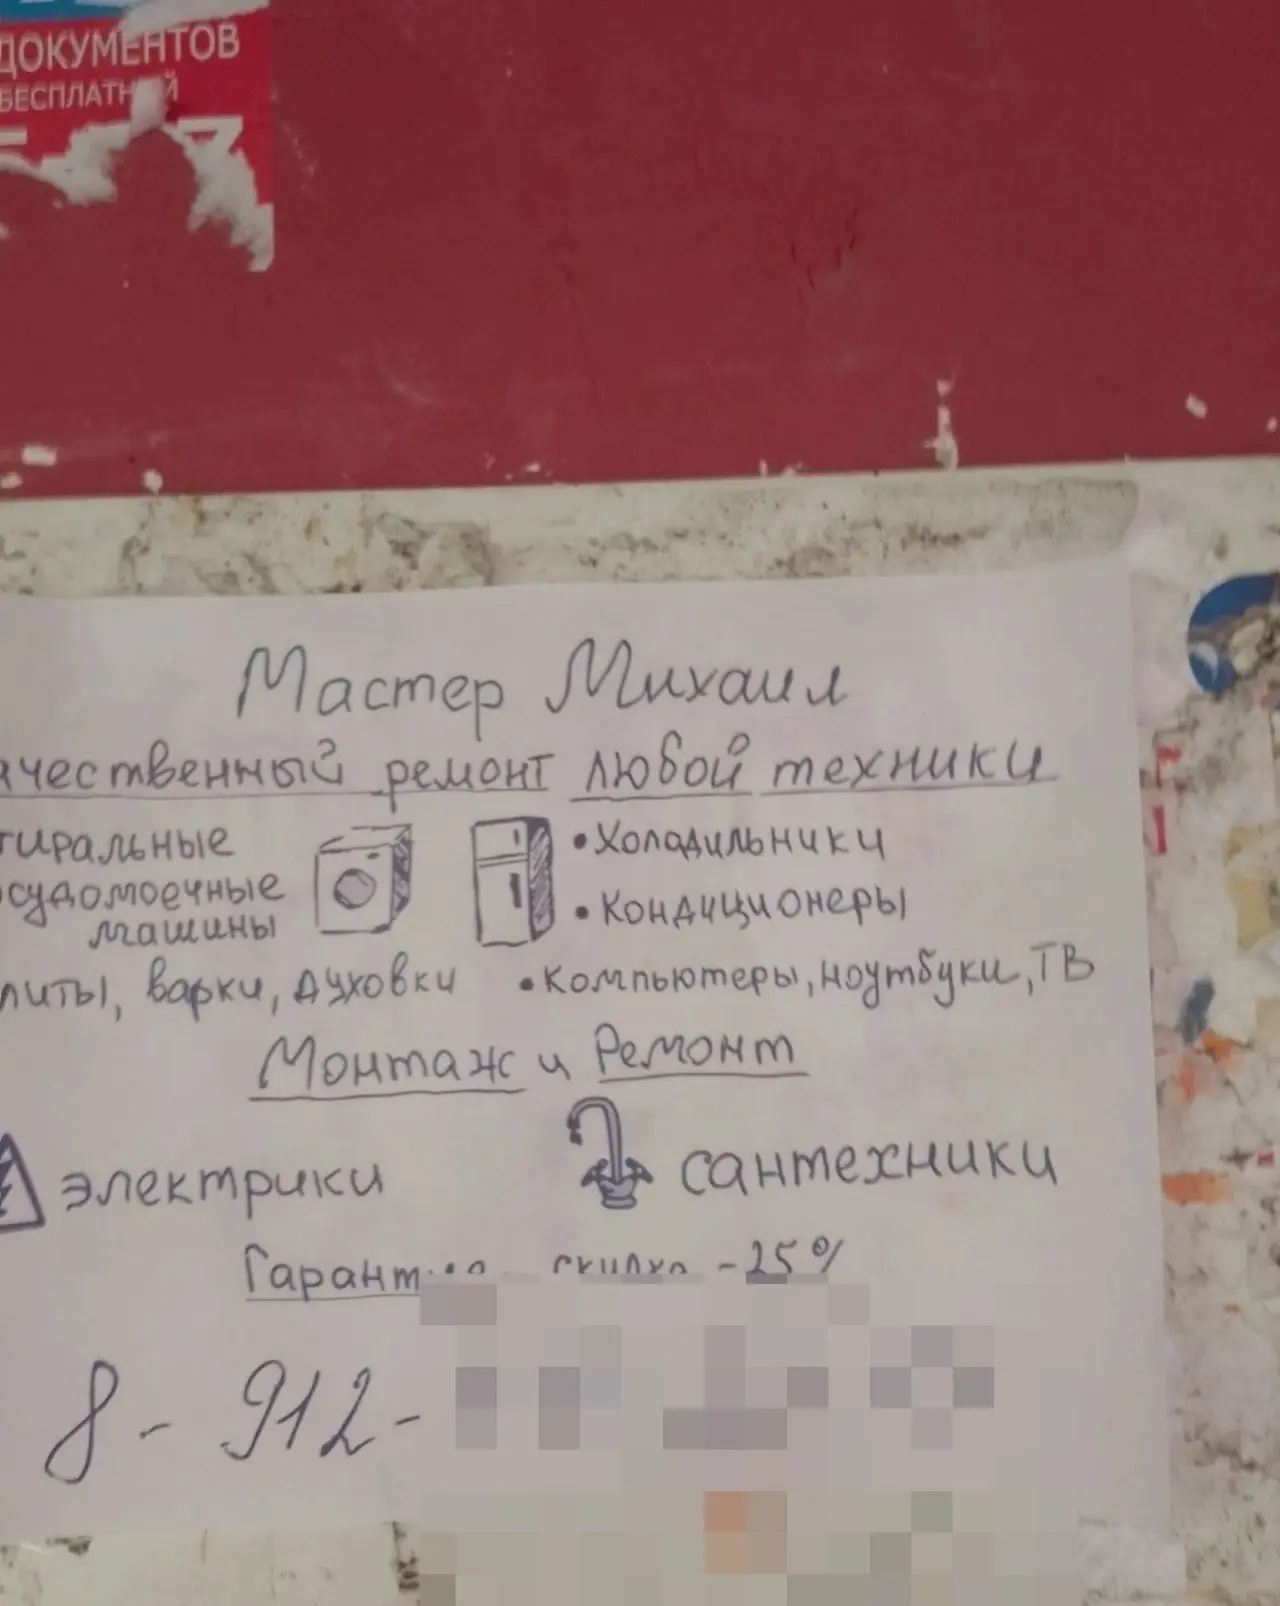 ДОКУМЕНТОВ
БЕСПЛАТНЫЙ
Мастер Михаил
ачественный ремонт любой техники
тиральные
осудомоечные
машины
• Холодильники
• Кондиционеры
литы, варки, духовки • Компьютеры, ноутбуки, ТВ
Монтаж и Ремонт
электрики сантехники
Гарантия скидка -25%
8-912-